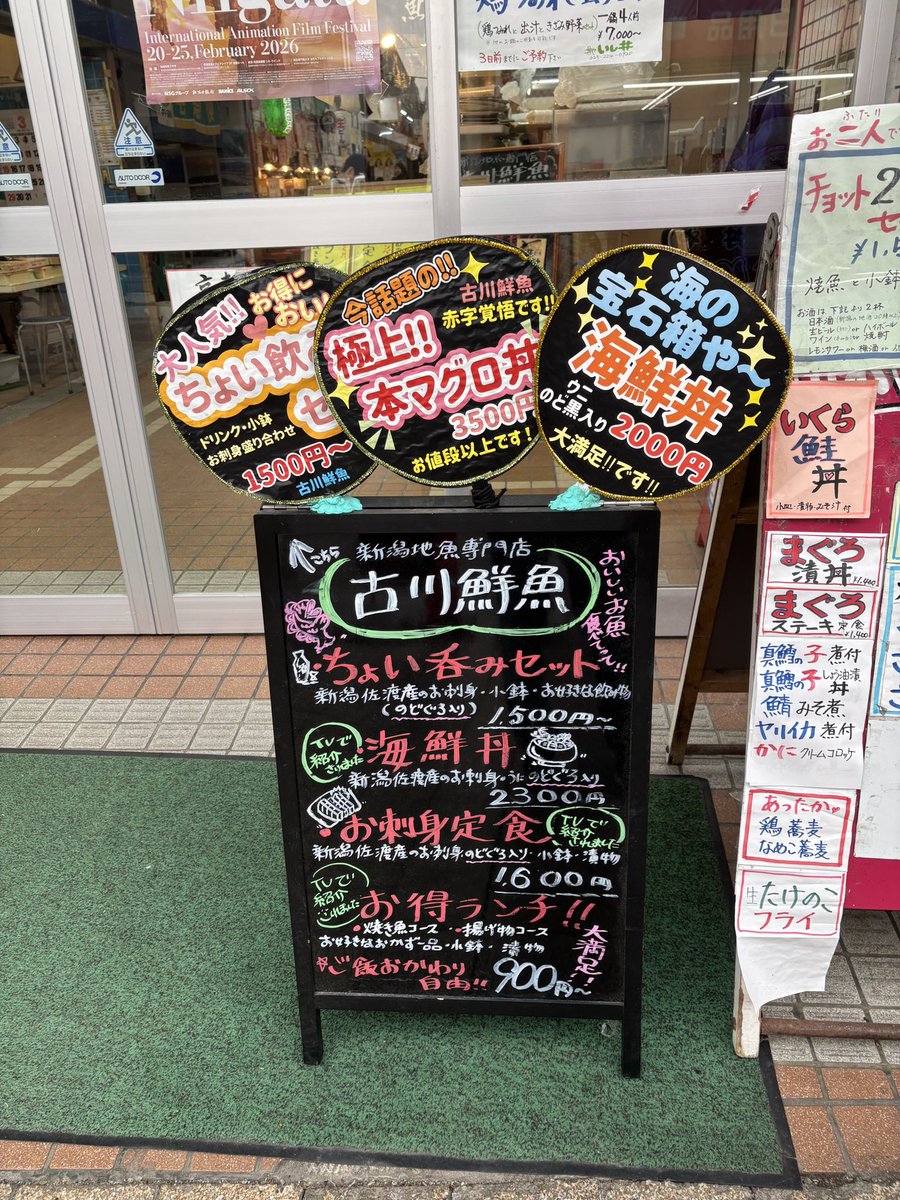 Niigata
International Animation Film Festival
20-25, February 2026
NSGグループ
(鶏つみれと出汁ときざみ野菜セット)
一鍋4人片
¥7,000〜
3日前までにご予約下さい
注意
AUTO DOOR
注意
AUTO DOOR
大人気!!
お得に
おい
ちょい飲
セ
ドリンク・小鉢
お刺身盛り合わせ
1500円〜
古川鮮魚
今話題の!!
古川鮮魚
赤字覚悟です!!
極上!!
本マグロ丼
3500円
お値段以上です!
海の
宝石箱や〜
海鮮丼
ウニ
のど黒入り
2000円
大満足!!です!!
こちら
新潟地魚専門店
古川鮮魚
おいしいお魚
食べてって!!
ちょい呑みセット
新潟佐渡産のお刺身・小鉢・お好きな飲み物
(のどぐろ入り)
1.500円〜
TVで
紹介
されました
海鮮丼
新潟佐渡産のお刺身・うに のどぐろ入り
2300円
お刺身定食
TVで
紹介
されました
新潟佐渡産のお刺身 のどぐろ入り・小鉢・漬物
1600円
TVで
紹介
されました
お得ランチ!!
・焼き魚コース・揚げ物コース
お好きなおかず一品・小鉢・漬物
☆ご飯おかわり
自由!!
900円〜
大満足!
ふたり
お二人で
チョット2
セ
¥1,5
焼魚と小鉢
お酒は下記より2杯
いくら
鮭
丼
小皿・漬物・みそ汁付
まぐろ
漬丼 ¥1,400
まぐろ
ステーキ定食 ¥1,400
真鱈の子煮付
真鱈の子しょう油漬丼
鯖みそ煮
ヤリイカ煮付
かにクリームコロッケ
あったか♥
鶏蕎麦
なめこ蕎麦
生たけのこ
フライ